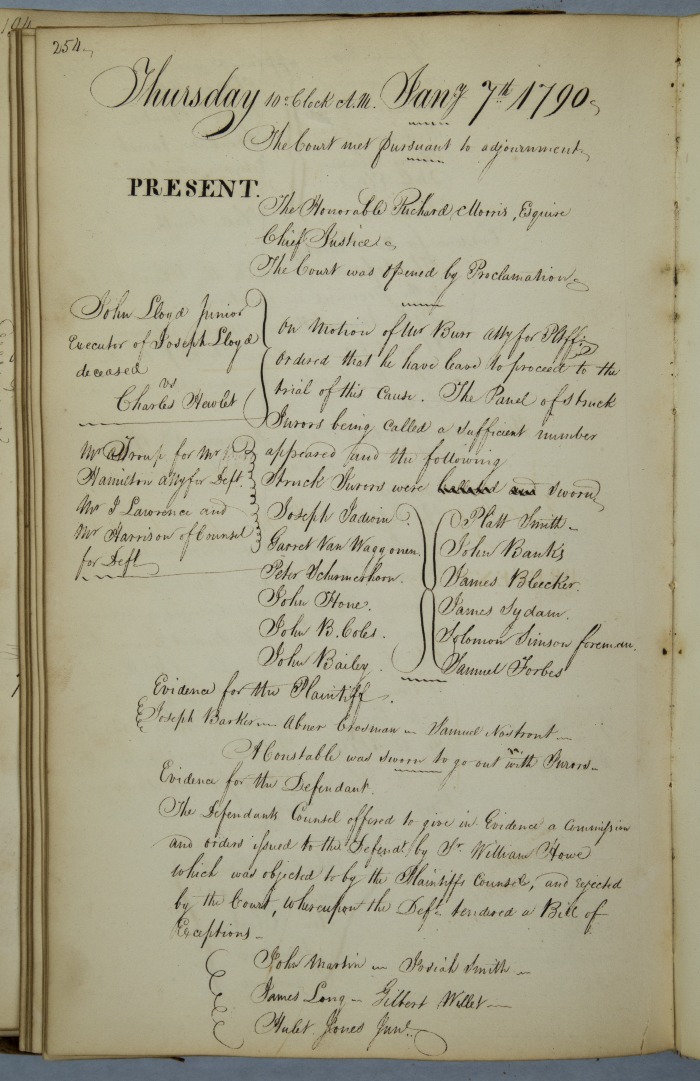 254
Thursday 10 o'Clock A.M. Jany 7th 1790
The Court met pursuant to adjournment
PRESENT.
The Honorable Richard Morris, Esquire
Chief Justice
The Court was opened by Proclamation
John Lloyd Junior
Executor of Joseph Lloyd
deceased
vs
Charles Hewlet
On Motion of Mr Burr atty for Plff
ordered that he have leave to proceed to the
trial of this cause. The Panel of struck
Jurors being called a sufficient number
appeared and the following
Struck Jurors were sworn
Mr Troup for Mr
Hamilton atty for Deft.
Mr J Lawrence and
Mr Harrison of Counsel
for Deft
Joseph Jadwin
Garret Van Waggonen
Peter Schermerhorn.
John Hone.
John B. Coles.
John Bailey
Platt Smith
John Banks
James Bleecker.
James Sydam.
Solomon Simson foreman.
Samuel Forbes
Evidence for the Plaintiff.
Joseph Barker — Abner Crosman — Samuel Nostront —
A Constable was sworn to go out with Jurors —
Evidence for the Defendant.
The Defendants Counsel offered to give in Evidence a Commission
and orders issued to the Defendt by Sr William Howe
which was objected to by the Plaintiffs Counsel, and rejected
by the Court, whereupon the Deft tendered a Bill of
Exceptions —
John Martin — Josiah Smith —
James Long — Gilbert Willet —
Hulet Jones Junr.